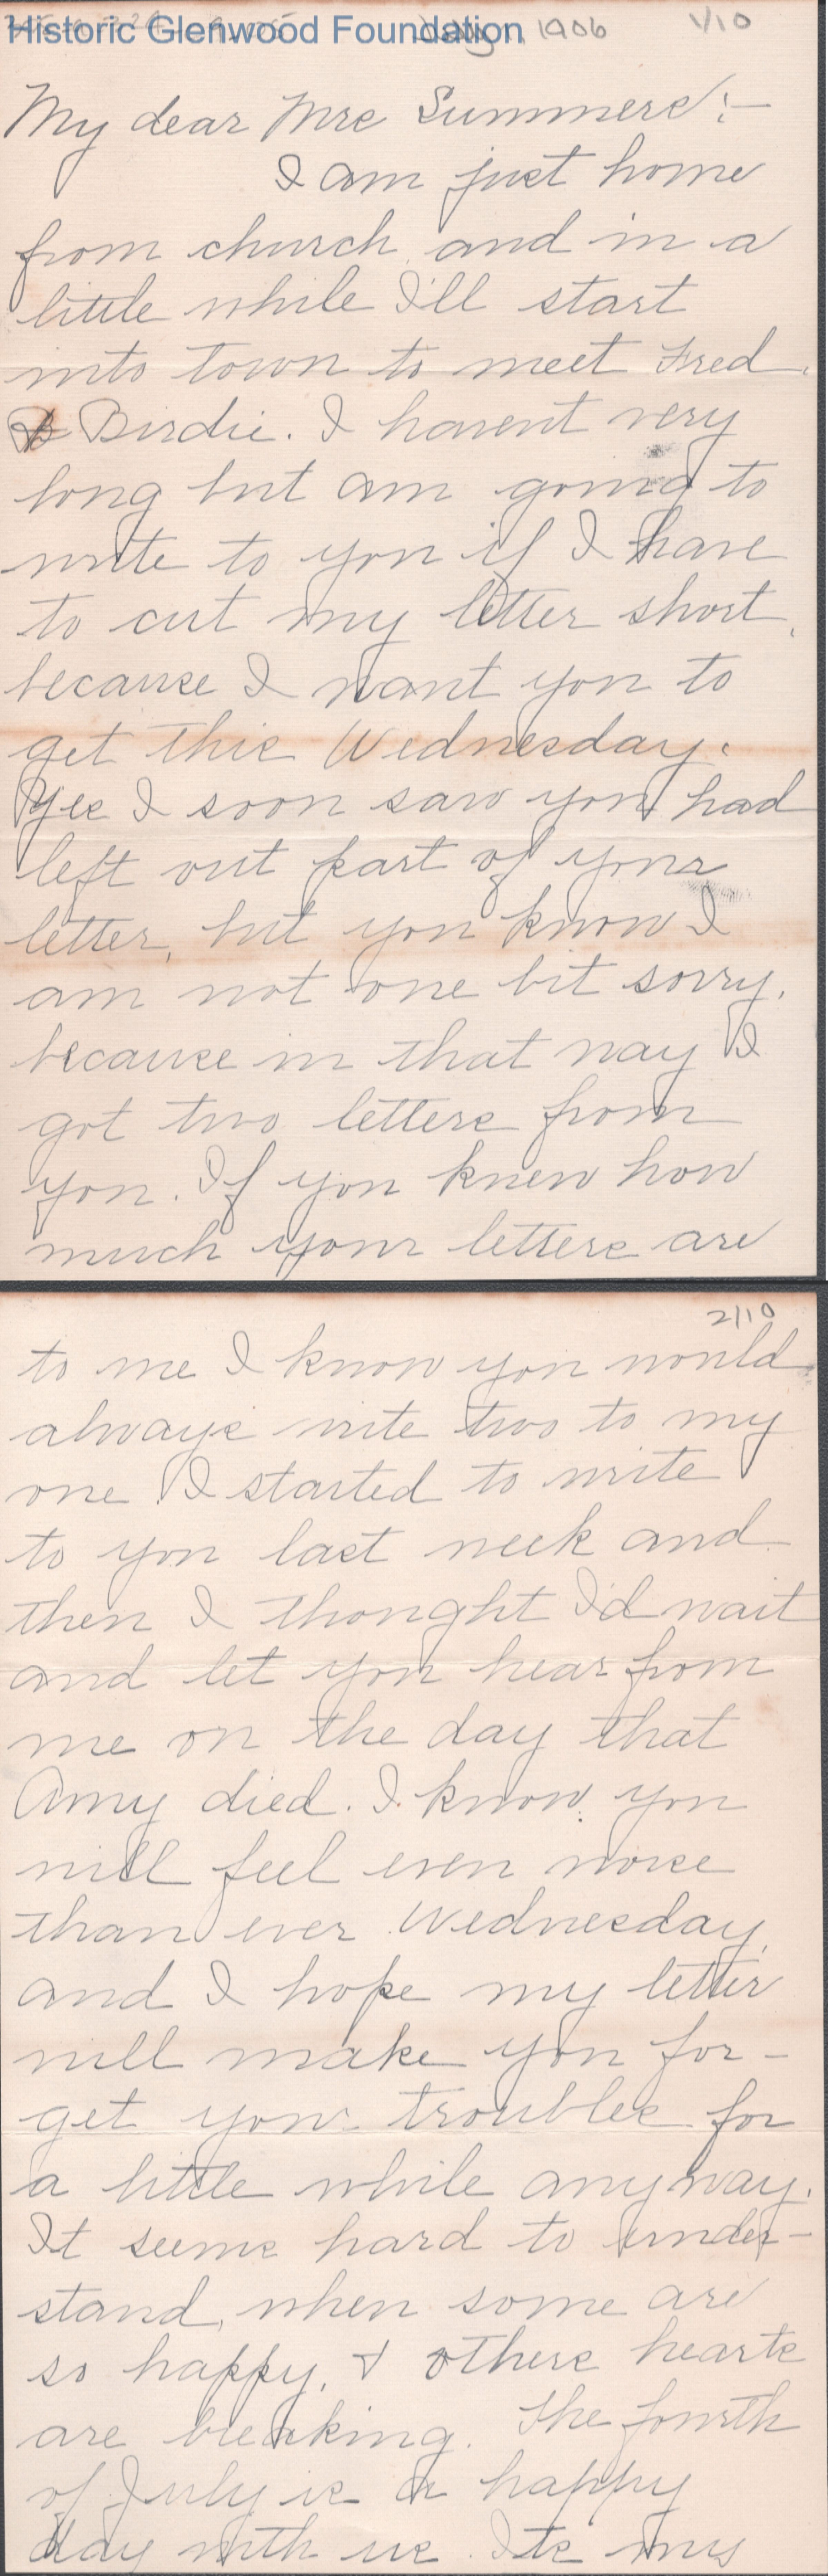 Historic Glenwood Foundation
1906 1/10
My dear Mrs Summers:—
I am just home
from church and in a
little while I'll start
into town to meet Fred
& Birdie. I havent very
long but am going to
write to you if I have
to cut my letter short,
because I want you to
get this Wednesday.
Yes I soon saw you had
left out part of your
letter, but you know I
am not one bit sorry,
because in that way I
got two letters from
you. If you knew how
much your letters are
2/10
to me I know you would
always write two to my
one. I started to write
to you last week and
then I thought I'd wait
and let you hear from
me on the day that
Amy died. I know you
will feel even worse
than ever Wednesday,
and I hope my letter
will make you for-
get your troubles for
a little while anyway.
It seems hard to under-
stand, when some are
so happy, & others hearts
are breaking. The fourth
of July is a happy
day with us. Its my